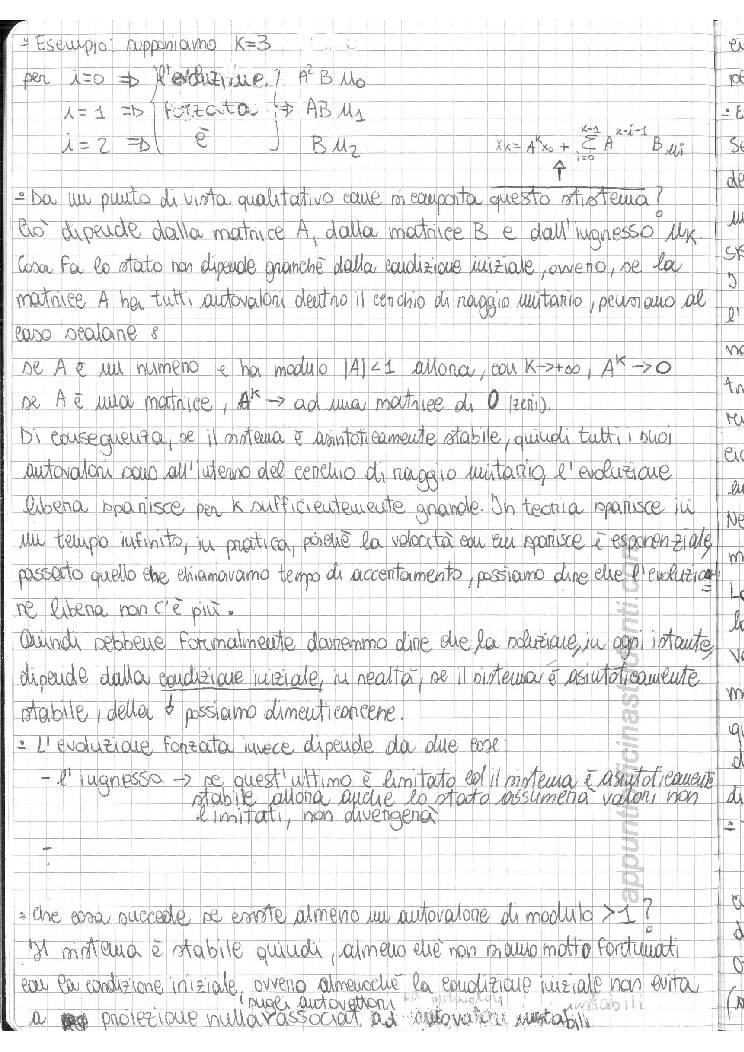 - Esempio: supponiamo K=3
per i=0 => l'evoluzione A²Bu₀
i=1 => forzata => ABu₁
i=2 => è Bu₂
x_k = A^k x₀ + Σ_{i=0}^{k-1} A^{k-i-1} B u_i
- Da un punto di vista qualitativo come si comporta questo sistema?
Ciò dipende dalla matrice A, dalla matrice B e dall'ingresso u_k
Cosa fa lo stato non dipende granché dalla condizione iniziale, ovvero, se la
matrice A ha tutti autovalori dentro il cerchio di raggio unitario, pensiamo al
caso scalare:
se A è un numero e ha modulo |A|<1 allora, con K->+∞, A^K -> 0
se A è una matrice, A^K -> ad una matrice di 0 (zeri).
Di conseguenza, se il sistema è asintoticamente stabile, quindi tutti i suoi
autovalori sono all'interno del cerchio di raggio unitario, l'evoluzione
libera sparisce per K sufficientemente grande. In teoria sparisce in
un tempo infinito, in pratica, poiché la velocità con cui sparisce è esponenziale,
passato quello che chiamavamo tempo di assestamento, possiamo dire che l'evoluzio=
ne libera non c'è più.
Quindi sebbene formalmente dovremmo dire che la soluzione, in ogni istante,
dipende dalla condizione iniziale, in realtà, se il sistema è asintoticamente
stabile, della possiamo dimenticarcene.
- L'evoluzione forzata invece dipende da due cose:
- l'ingresso -> se quest'ultimo è limitato ed il sistema è asintoticamente
stabile allora anche lo stato assumerà valori non
limitati, non divergerà
-
- Che cosa succede se esiste almeno un autovalore di modulo >1?
Il sistema è stabile quindi, almeno che non siamo molto fortunati
con la condizione iniziale, ovvero almenoché la condizione iniziale non evita
sugli autovettori
a proiezione nulla associati ad autovalori instabili
appuntiofficinastudenti.com